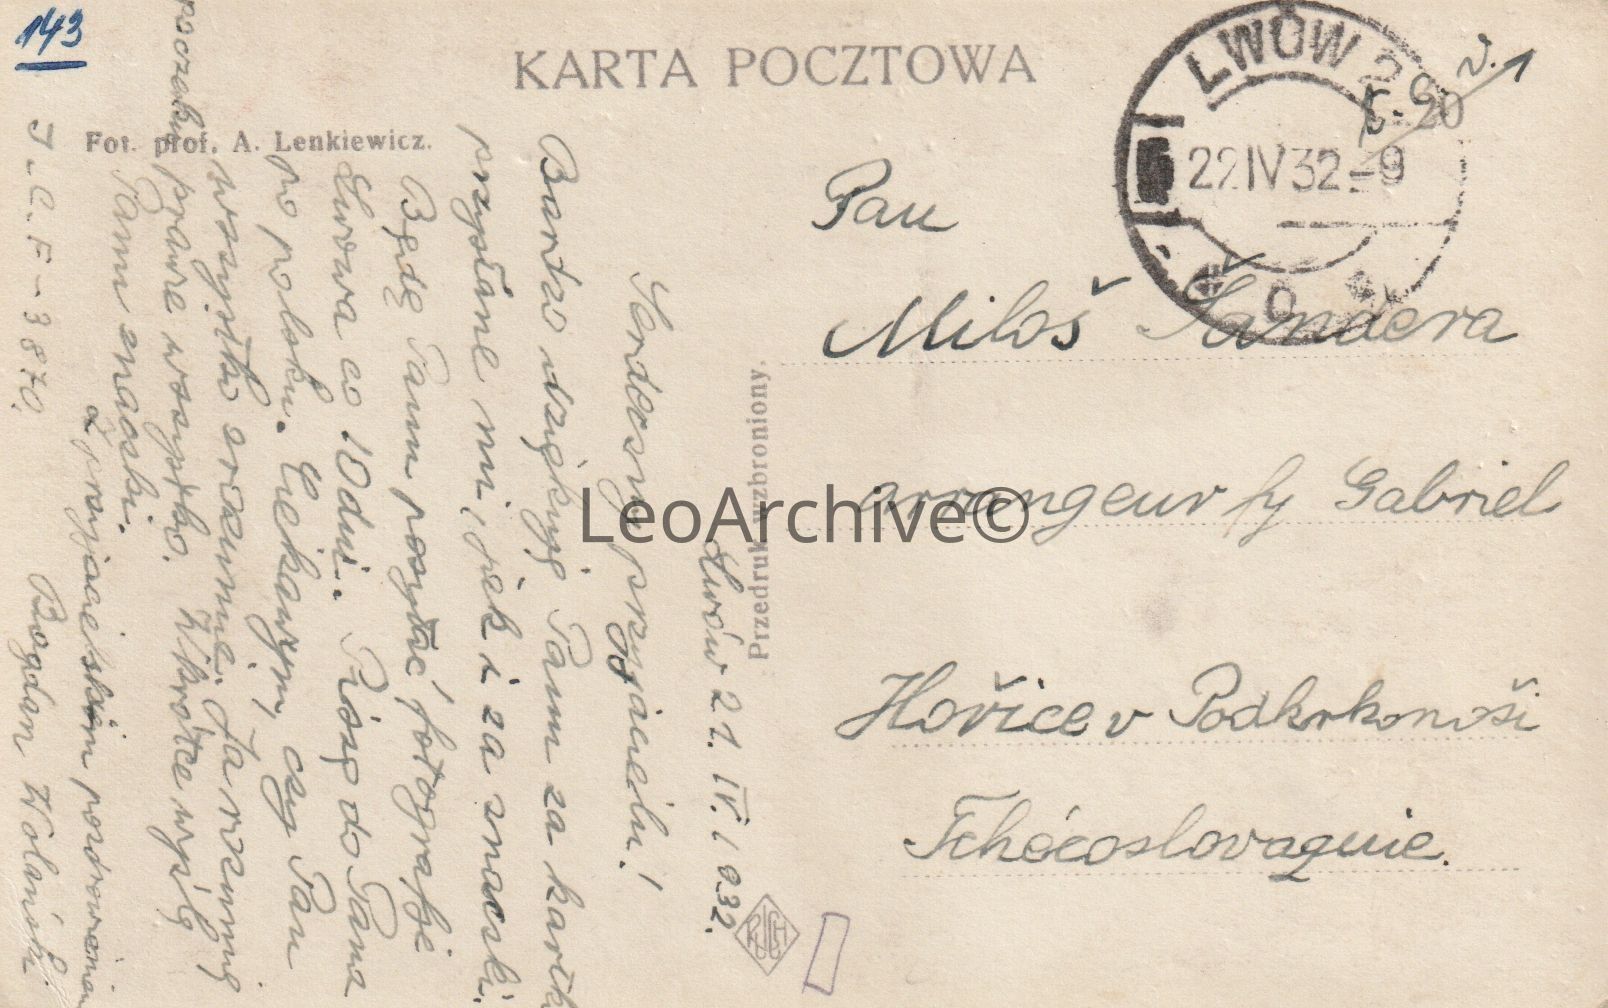 143
KARTA POCZTOWA
Fot. prof. A. Lenkiewicz.
LWÓW 2
22 IV 32 - 9
Pan
Miloš Šandera
arrangeur fy Gabriel
Hořice v Podkrkonoší
Tchécoslovaquie.
Przedruk wzbroniony.
RUCH
LeoArchive©
Lwów 21. IV. 1932.
Serdeczny przyjacielu!
Bardzo dziękuję Panu za kartki
przysłane mi, jak i za znaczki.
Będę Panu posyłać fotografje
Lwowa co 10 dni. Piszę do Pana
po polsku. Ciekawym, czy Pan
wszystko zrozumie. Ja rozumię
prawie wszystko. Wkrótce wyślę
Panu znaczki.
Z przyjacielskiem pozdrowieniem
Bogdan Wolański.
J.C.F - 3870.